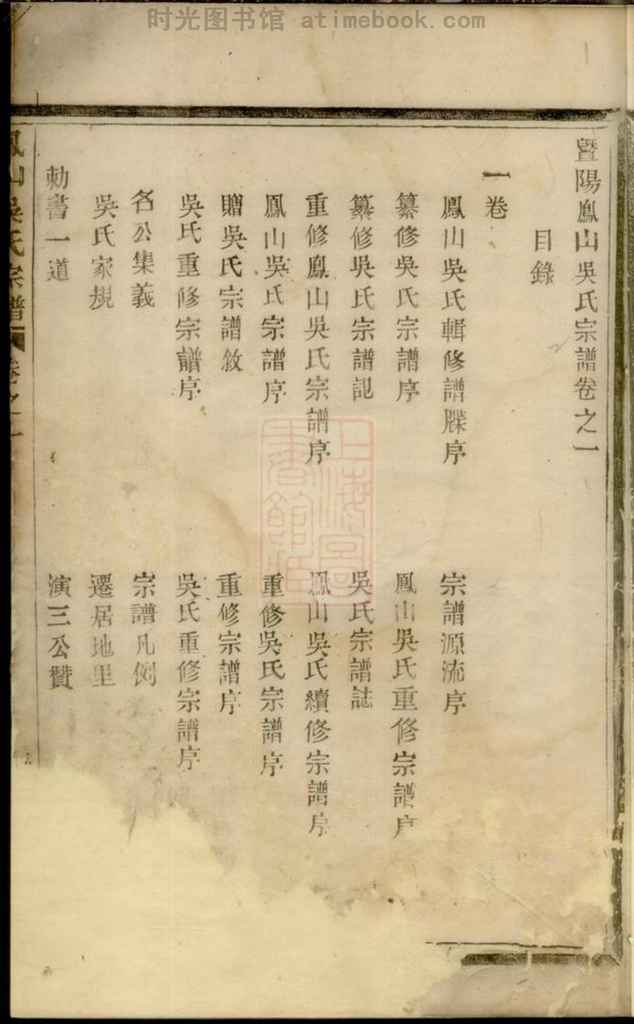 时光图书馆 atimebook.com
暨陽鳳山吳氏宗譜卷之一
目錄
一卷
鳳山吳氏輯修譜牒序
宗譜源流序
纂修吳氏宗譜序
鳳山吳氏重修宗譜序
纂修吳氏宗譜記
吳氏宗譜誌
重修鳳山吳氏宗譜序
鳳山吳氏續修宗譜序
鳳山吳氏宗譜序
重修吳氏宗譜序
贈吳氏宗譜敘
重修宗譜序
吳氏重修宗譜序
吳氏重修宗譜序
名公集義
宗譜凡例
吳氏家規
遷居地里
勅書一道
演三公贊
鳳山吳氏宗譜 卷之一
上海圖書館